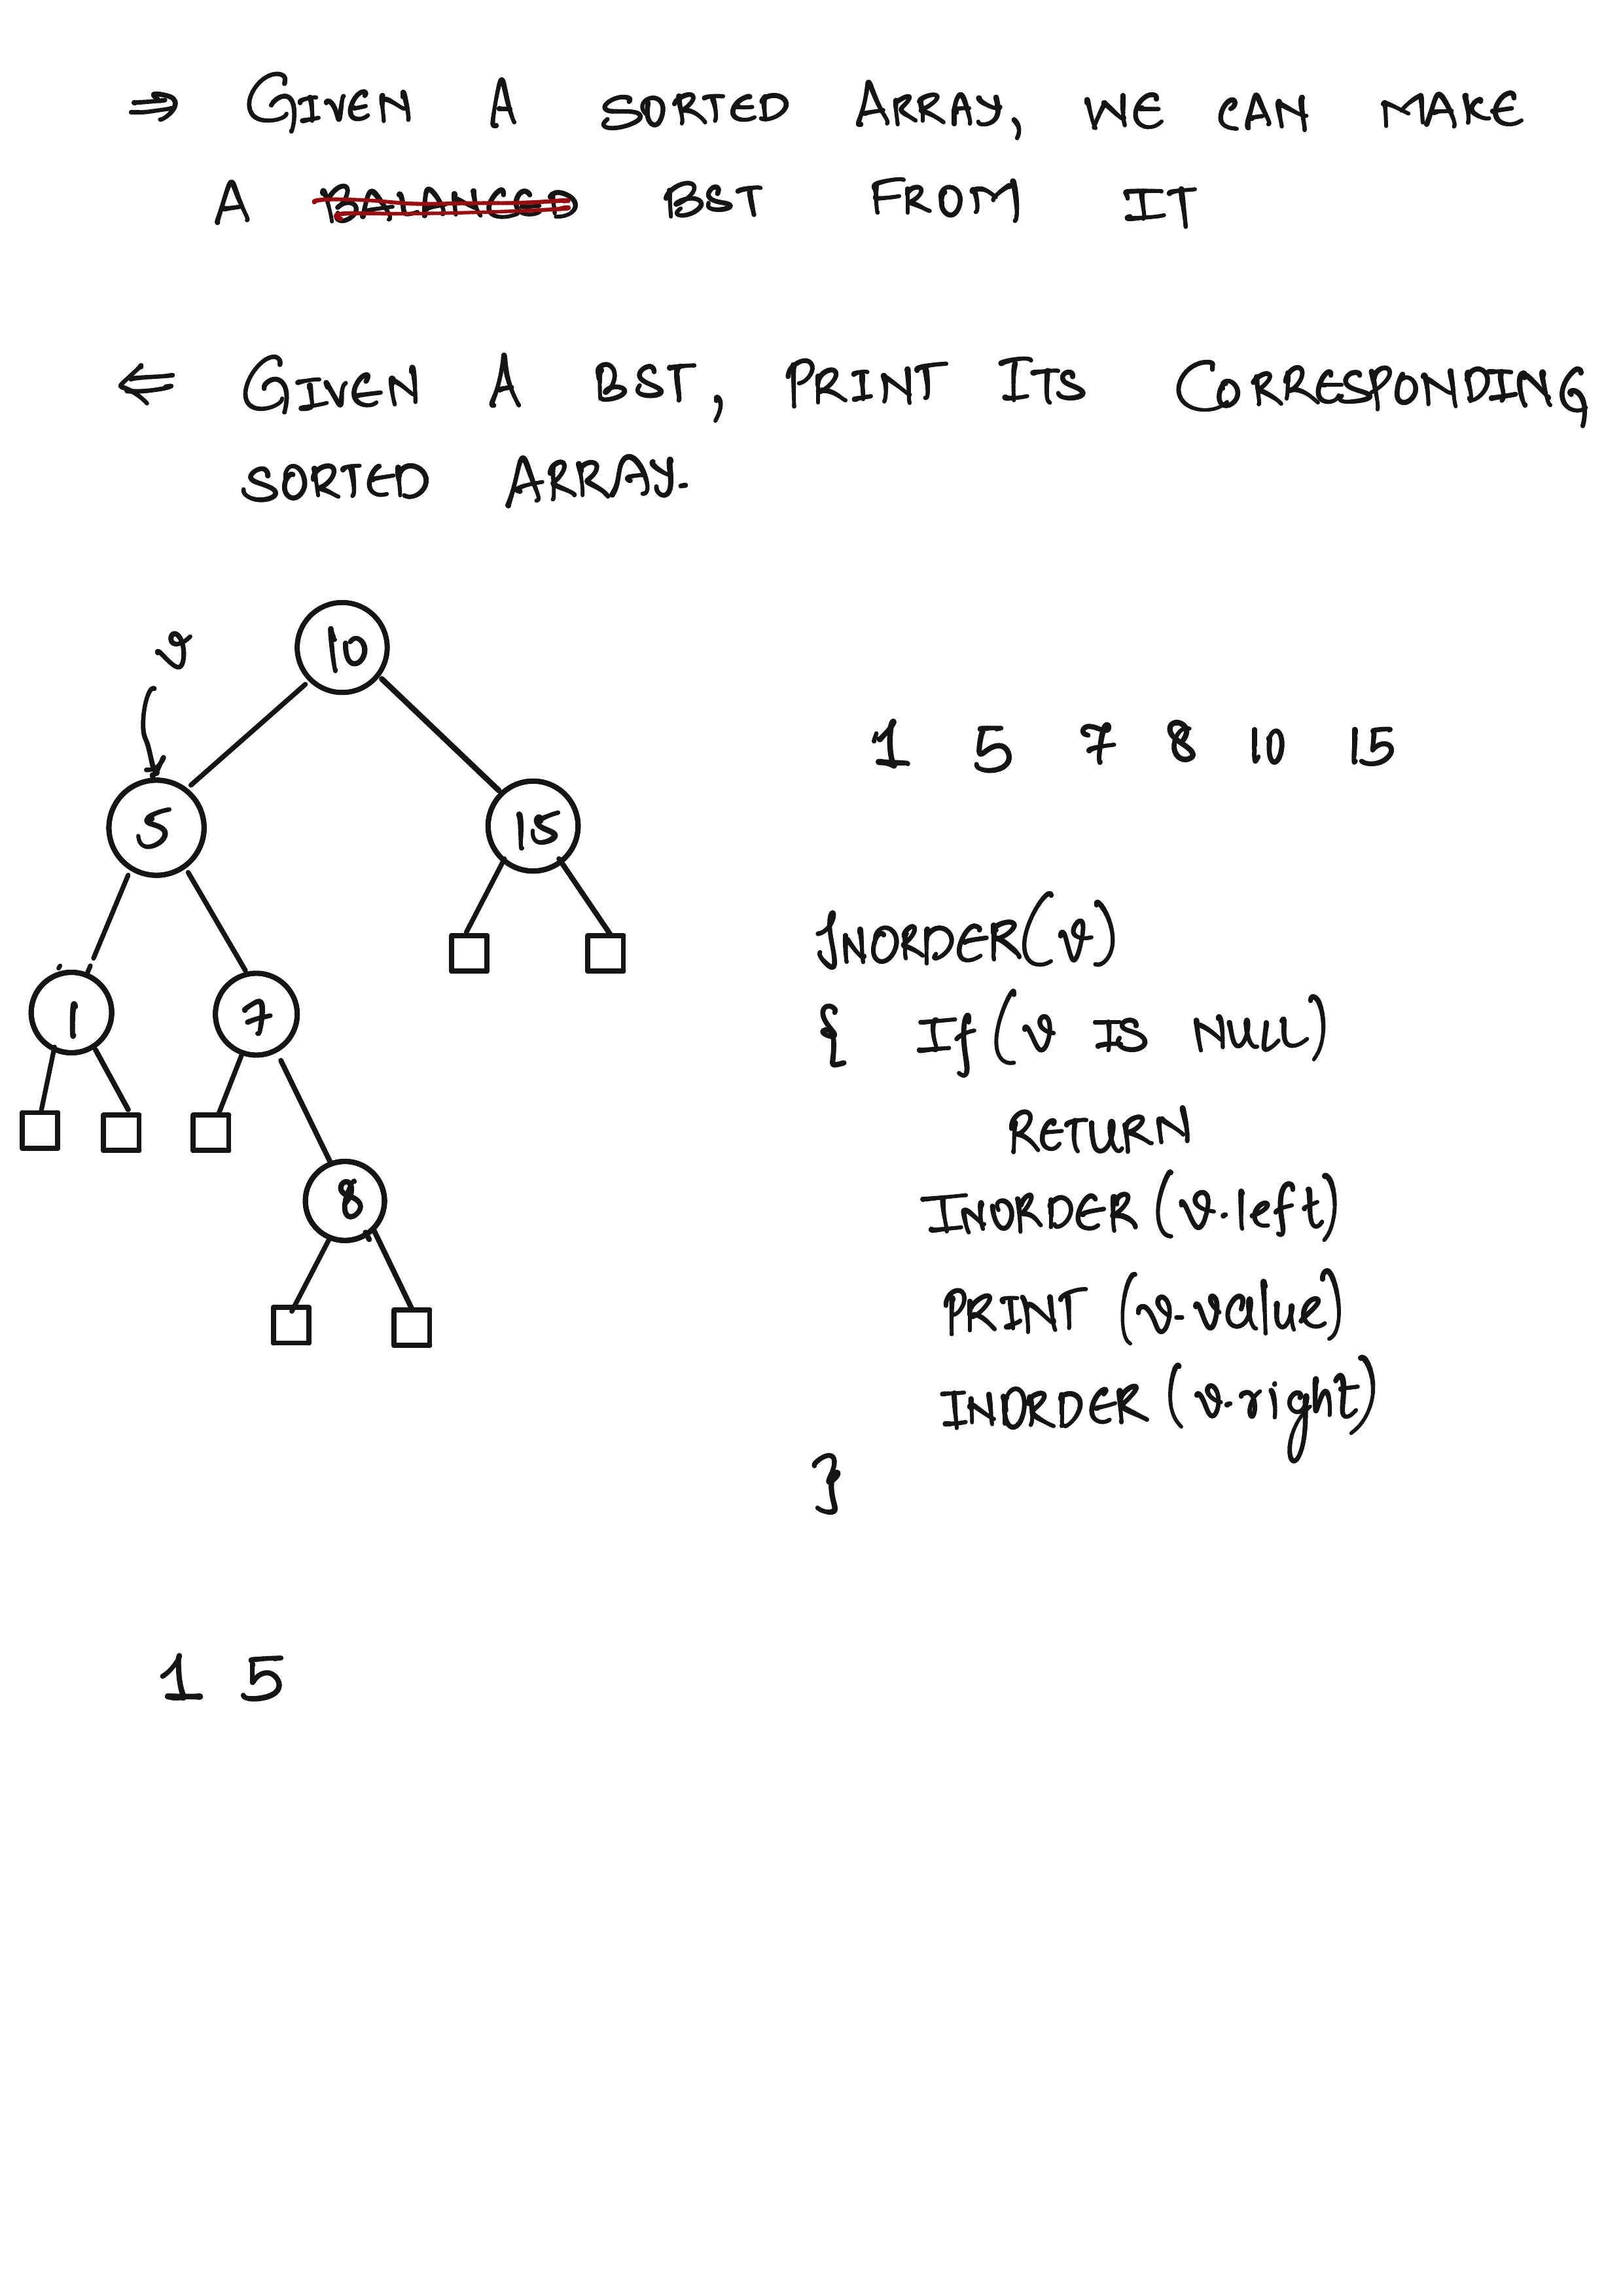 ⇒ GIVEN A SORTED ARRAY, WE CAN MAKE
A BALANCED BST FROM IT
⇐ GIVEN A BST, PRINT ITS CORRESPONDING
SORTED ARRAY.
v
10
5
15
1
7
8
1 5 7 8 10 15
INORDER(v)
{ If (v IS NULL)
RETURN
INORDER (v.left)
PRINT (v.value)
INORDER (v.right)
}
1 5